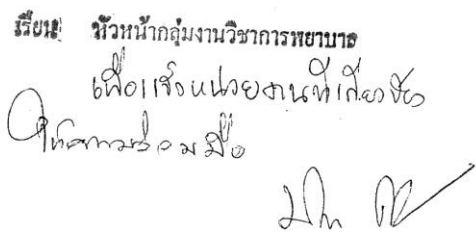 เรียน หัวหน้ากลุ่มงานวิชาการพยาบาล
เพื่อแจ้งหน่วยงานที่เกี่ยวข้อง
ให้ความร่วมมือ